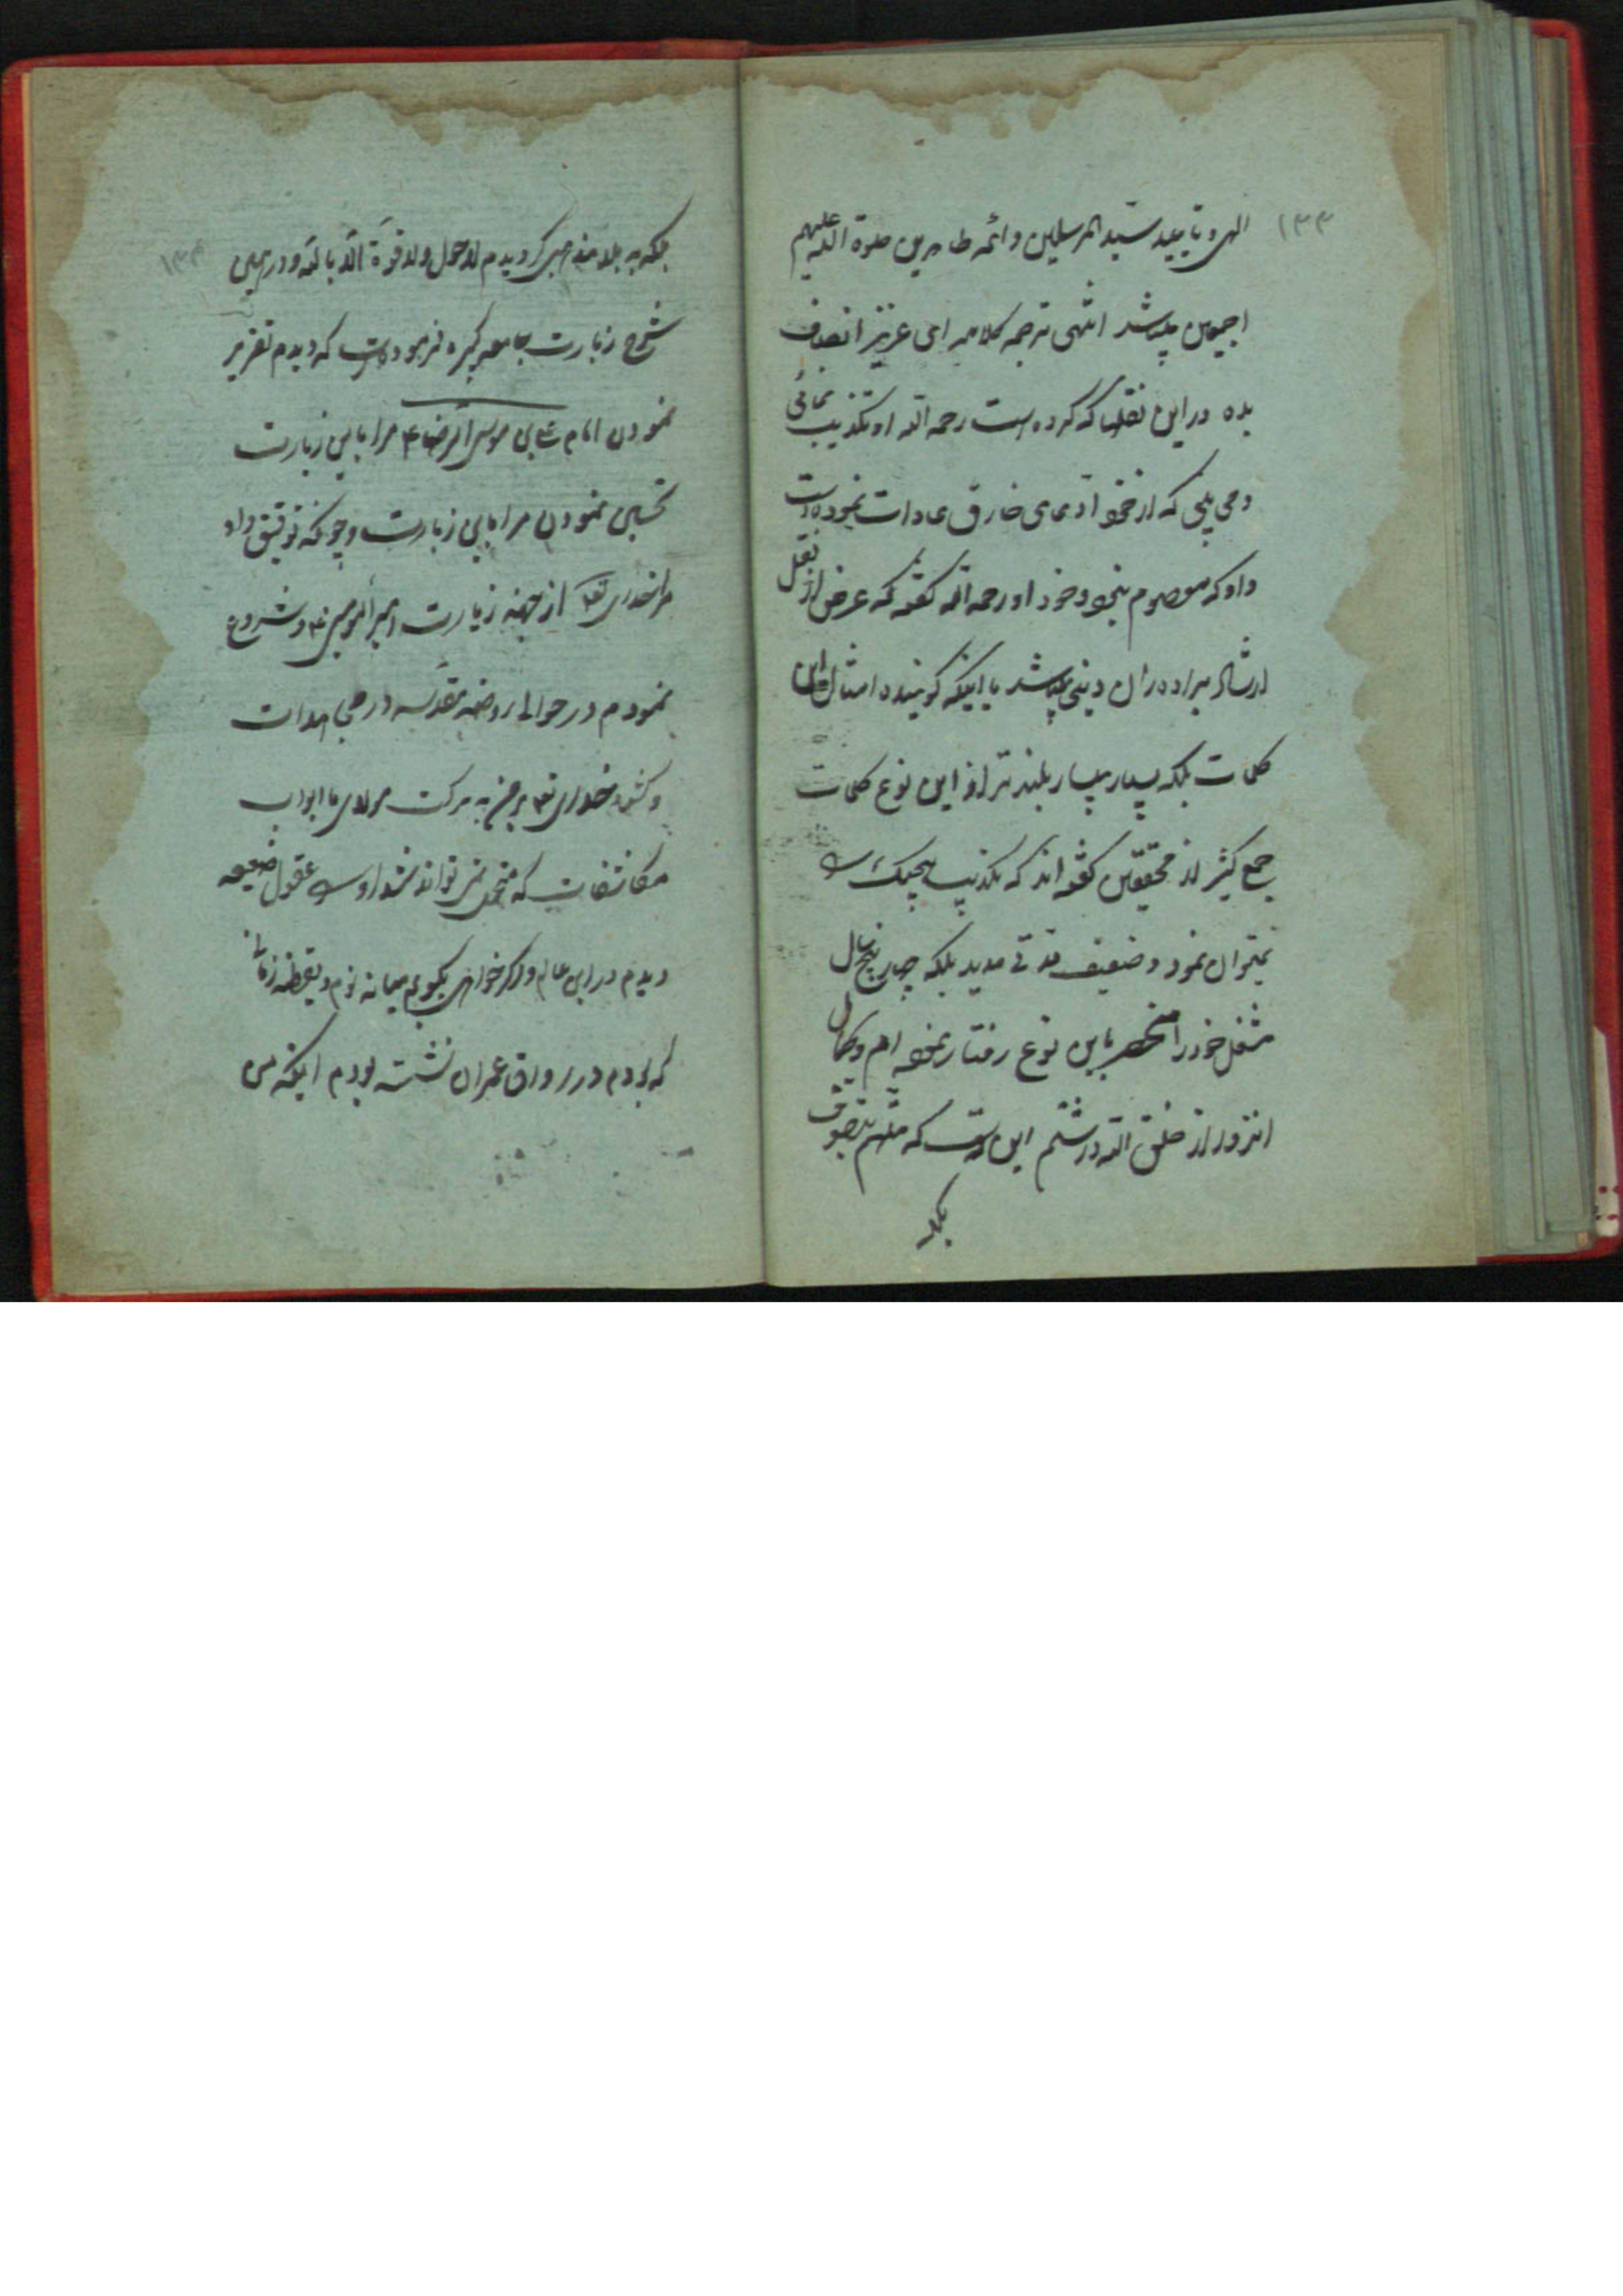 ۱۳۳
الهی و تایید سید المرسلین و ائمه طاهرین صلوة الله علیهم
اجمعین میباشد انتهی ترجمه کلامه ای عزیز انصاف
بده در این نقلها که کرده است رحمه الله او تکذیب نمائی
و می بینی که از خود ادعای خارق عادات نموده است
و او که معصوم نبود و خود او رحمه الله گفته که غرض از نقل
ارشاد برادران دینی میباشد با اینکه گوینده امثال این
کلمات بلکه بسیار بسیار بلندتر از این نوع کلمات
جمع کثیر از محققین گفته اند که تکذیب هیچیک را
نمیتوان نمود و ضعیف مدتی مدید بلکه چهار پنج سال
شغل خود را منحصر باین نوع رفتار نموده ام و کمال
انزوا از خلق الله داشتم این است که متهم بتصوف
بلکه
۱۳۴
بلکه به بلا مذهبی گردیدم لا حول ولا قوة الا بالله و در همین
شرح زیارت جامعه کبیره فرموده است که دیدم تقریر
نمودن امام علی بن موسی الرضا ع مرا باین زیارت
تحسین نمودن مرا باین زیارت و چونکه توفیق داد
مرا خدای تعا از جهة زیارت امیر المومنین ع و شروع
نمودم در حوالی روضه مقدسه در مجاهدات
و گشود خدای تعا بر من به برکت مولای ما ابواب
مکاشفات که متحمل نمی تواند شد او را عقول ضعیفه
دیدم در این عالم و اگر خواهی بگویم میانه نوم و یقظه زمانی
که بودم در رواق عمران نشسته بودم اینکه من